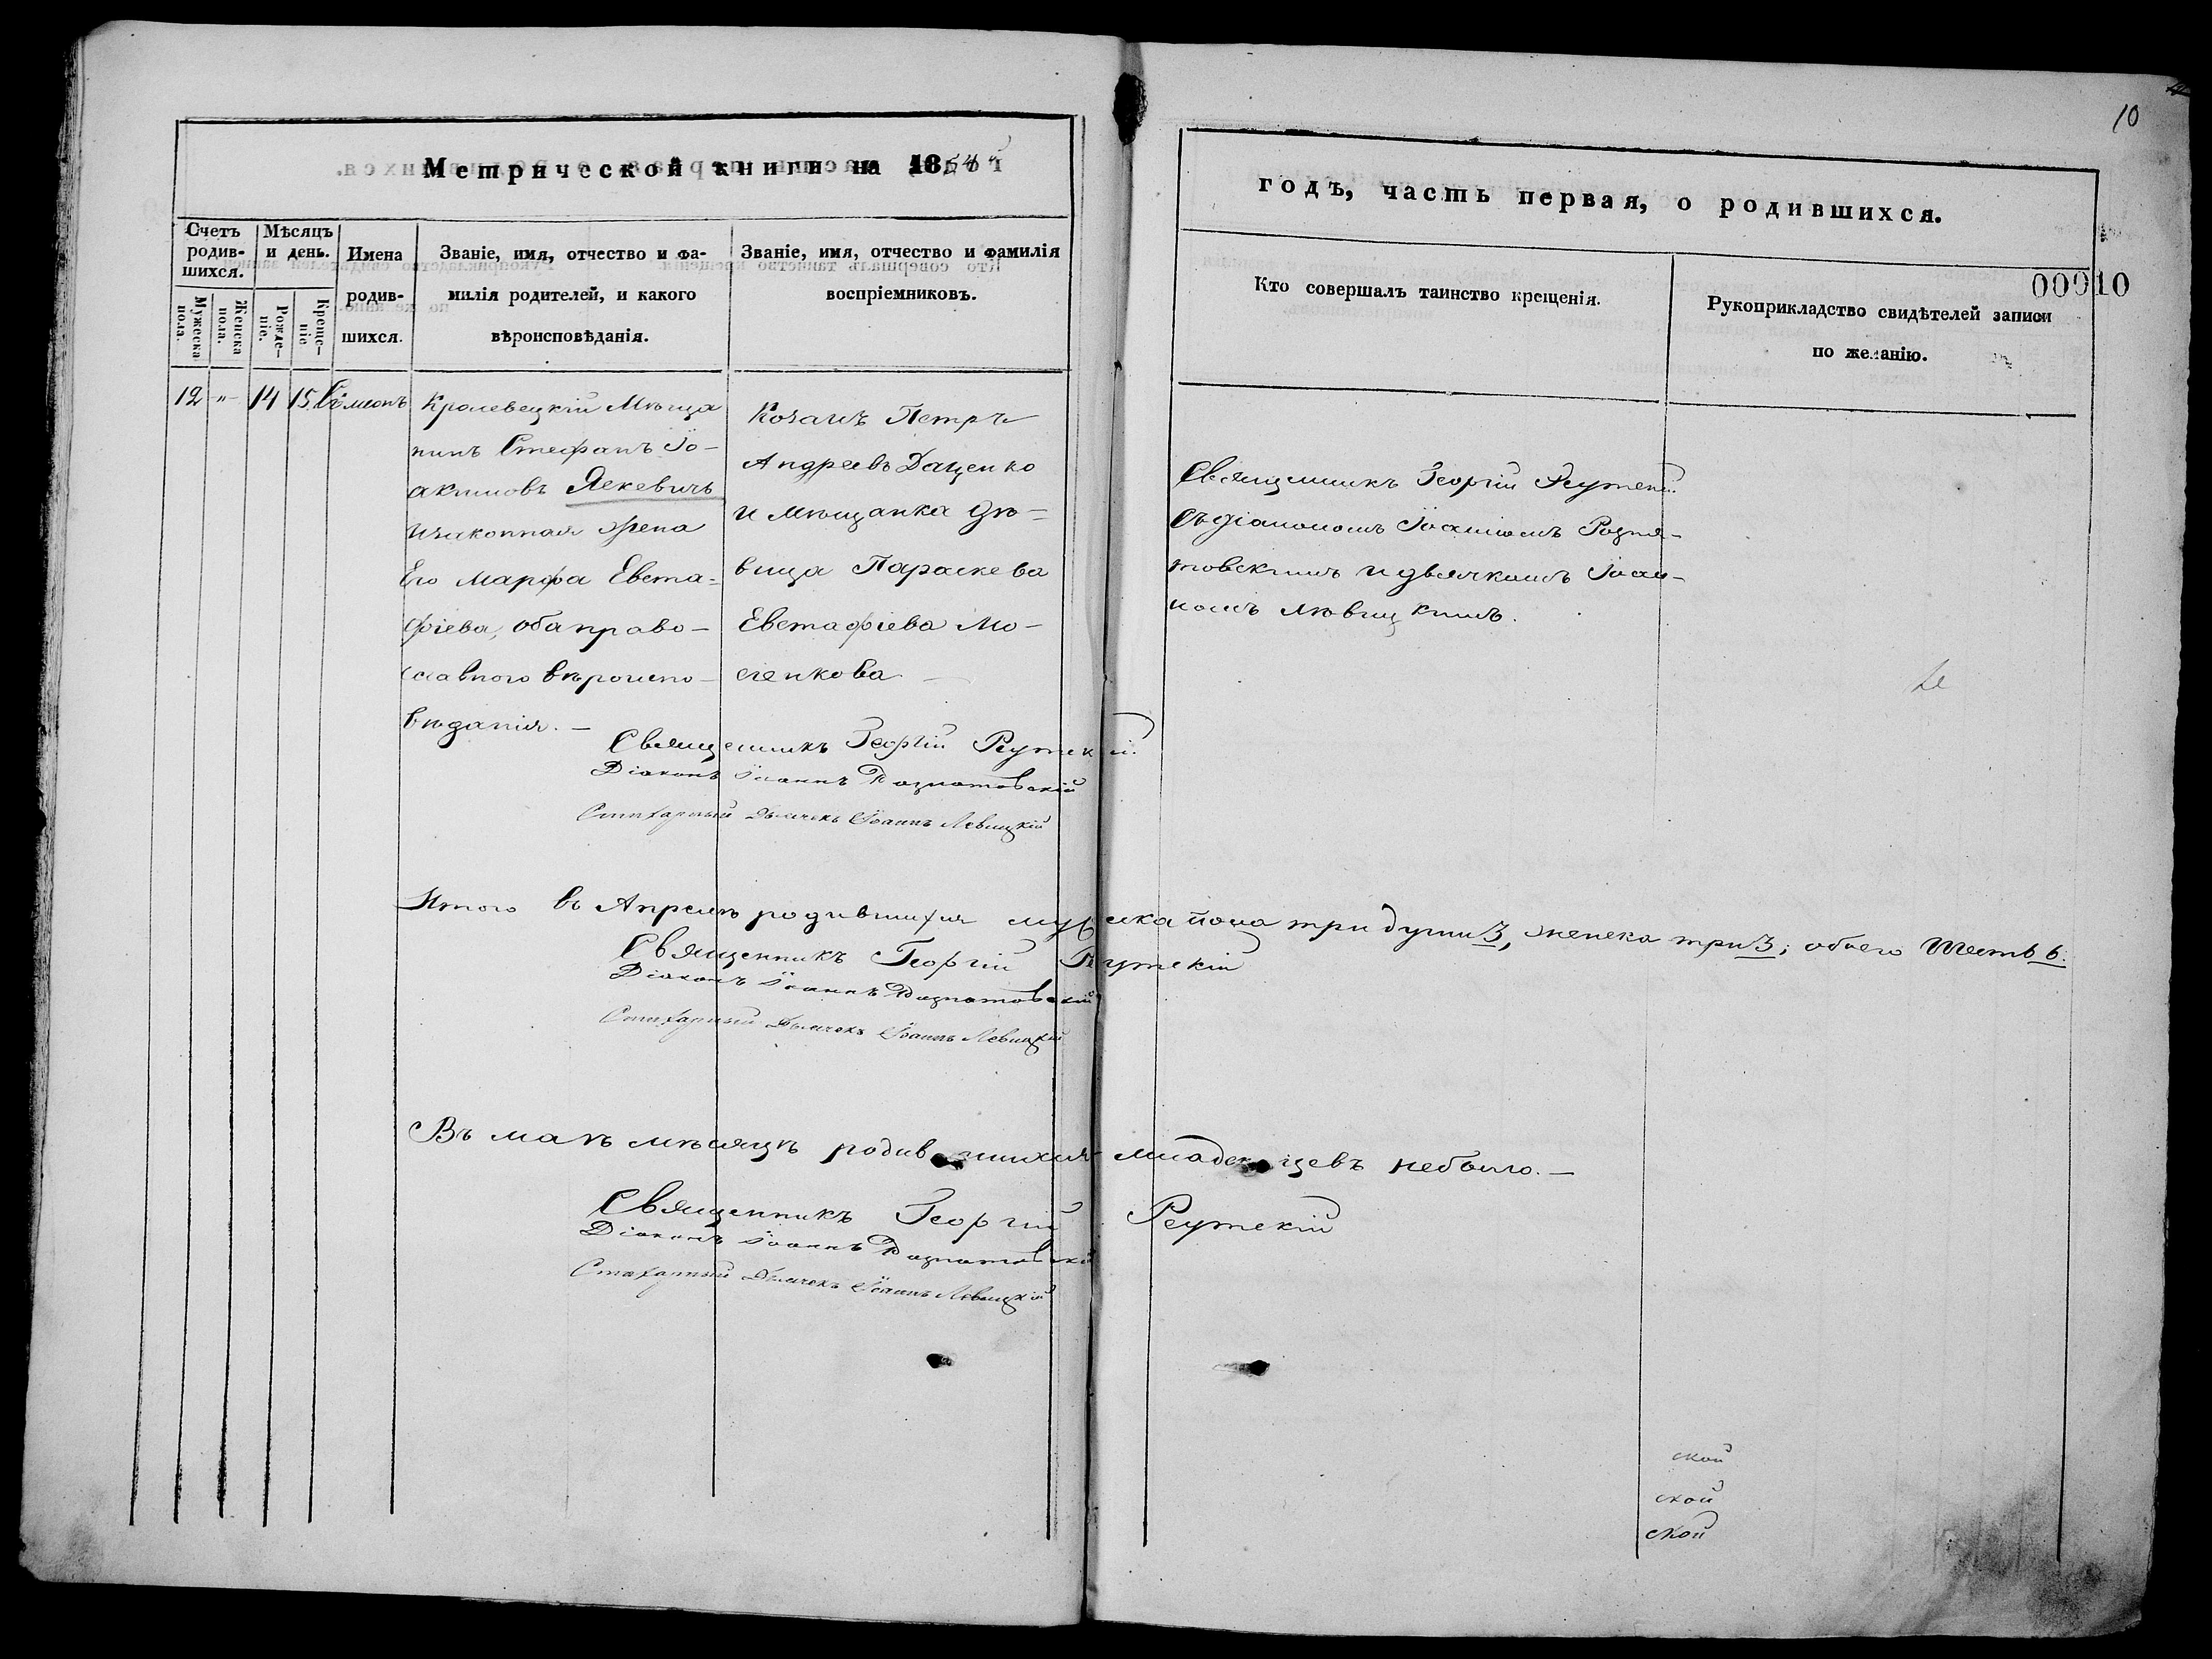 10
Метрической книги на 1854й
годъ, часть первая, о родившихся.
00010
Счетъ родив-шихся.
Мужеска пола.
Женска пола.
Мѣсяцъ и день.
Рожде-ніе.
Креще-ніе
Имена
родив-
шихся.
Званіе, имя, отчество и фа-
милія родителей, и какого
вѣроисповѣданія.
Званіе, имя, отчество и фамилія
воспріемниковъ.
Кто совершалъ таинство крещенія.
Рукоприкладство свидѣтелей записи
по желанію.
12 -"- 14 15 Сѵмеонъ
Кролевецкій Мѣща
нинъ Стефанъ Іо-
акимовъ
изаконная Жена
Его Марфа Евста-
фіева, оба право-
славного вѣроиспо-
вѣданія. -
Козакъ Петръ
Андреевъ Даценко
и мѣщанка дѣ-
вица Параскева
Евстафіева Мо-
сенкова -
Священникъ Георгій Реутскій
съ діакономъ Іоанномъ Розня-
товскимъ и дьячкомъ Іоан-
номъ Левицкимъ.
Священникъ Георгій Реутскій
Діаконъ Іоаннъ Рознатовскій
Стихарный Дьячекъ Іоаннъ Левицкій
Итого въ Апрелѣ родившихся мужеска пола три души 3, женска три 3; обоего шесть 6.
Священникъ Георгій Реутскій
Діаконъ Іоаннъ Рознатовскій
Стихарный Дьячекъ Іоаннъ Левицкій
Въ маѣ мѣсяцѣ родившихся младенцевъ небыло. -
Священникъ Георгій Реутскій
Діаконъ Іоаннъ Рознатовскій
Стихарный Дьячекъ Іоаннъ Левицкій
ской
ской
ской